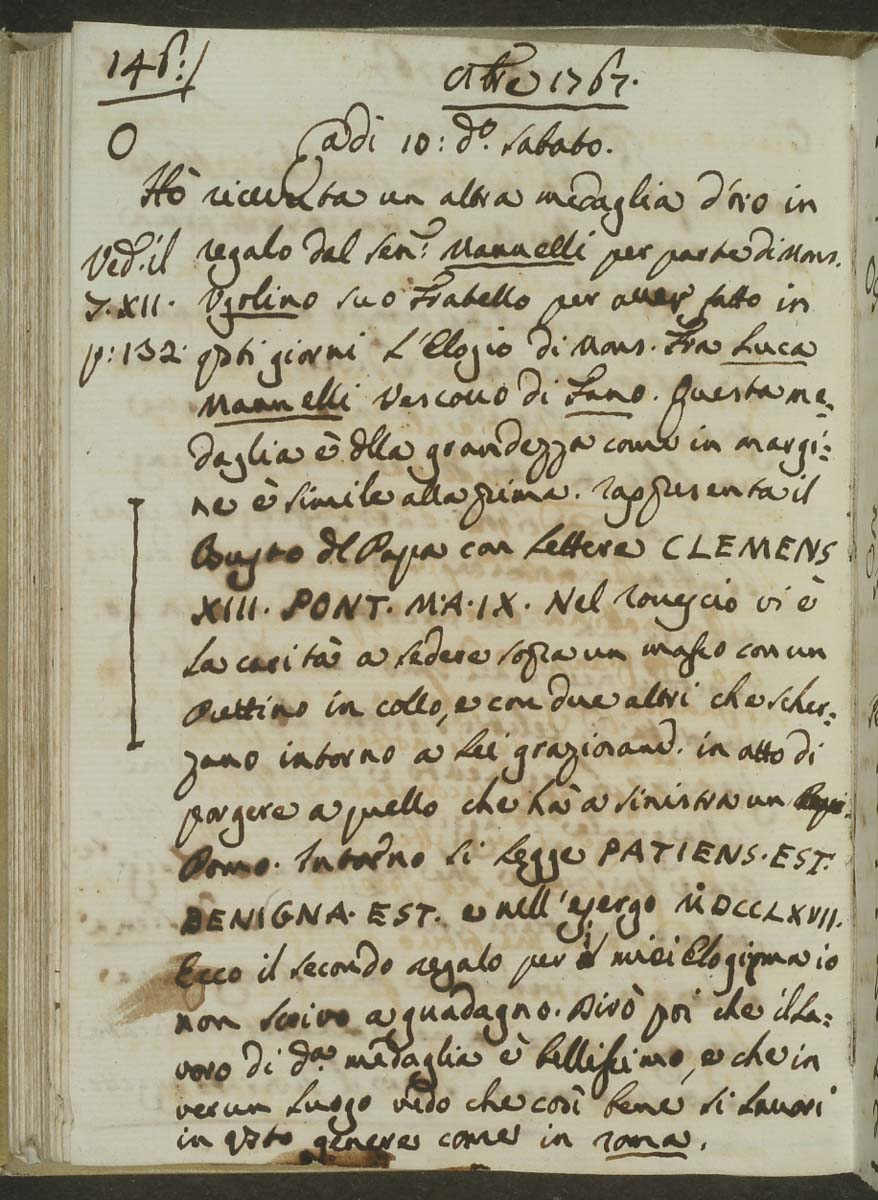 146:/
8bre 1767.
O
adi 10: do. sabato.
Hò ricevuta un altra medaglia d'oro in
Ved. il
regalo dal Sen: Mannelli per parte di Mons.
T. XII.
Ugolino suo Fratello per aver fatto in
p: 132.
qsti giorni L'Elogio di Mons. Fra Luca
Mannelli Vescovo di Fano. Questa me-
daglia è dlla grandezza come in margi:
ne è simile alla prima. rappresenta il
Busto dl Papa con Lettere CLEMENS
XIII. PONT. M. A. IX. Nel rovescio vi è
La carità a sedere sopra un masso con un
Puttino in collo, e con due altri che scher:
zano intorno a Lei graziosamd. in atto di
porgere a quello che hà a sinistra un
Pomo. Intorno si Legge PATIENS. EST.
BENIGNA. EST. e nell'esergo MDCCLXVII.
Ecco il secondo regalo per i miei Elogi, ma io
non scrivo a guadagno. Dirò poi che il La:
voro di da. medaglia è bellissimo, e che in
verun Luogo vedo che così bene si Lavori
in qsto genere come in roma.